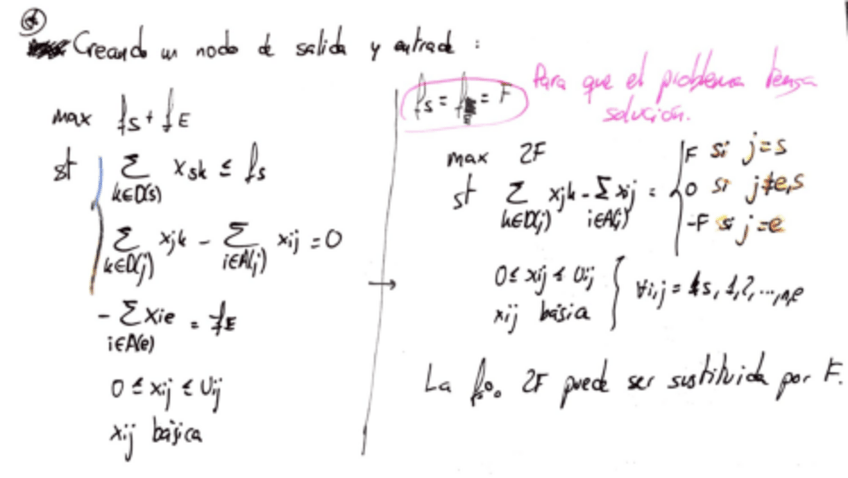 Creando un nodo de salida y entrada :
max f_S + f_E
st ∑_{k∈D(s)} x_{sk} ≤ f_s
∑_{k∈D(j)} x_{jk} - ∑_{i∈A(j)} x_{ij} = 0
- ∑_{i∈A(e)} x_{ie} = f_E
0 ≤ x_{ij} ≤ U_{ij}
x_{ij} básica
→
f_S = f_E = F
Para que el problema tenga
solución.
max 2F
st ∑_{k∈D(j)} x_{jk} - ∑_{i∈A(j)} x_{ij} = { F si j=s
0 si j≠e,s
-F si j=e
0 ≤ x_{ij} ≤ U_{ij}
x_{ij} básica } ∀i,j = s, 1, 2, ..., n, e
La f_{so} 2F puede ser sustituida por F.